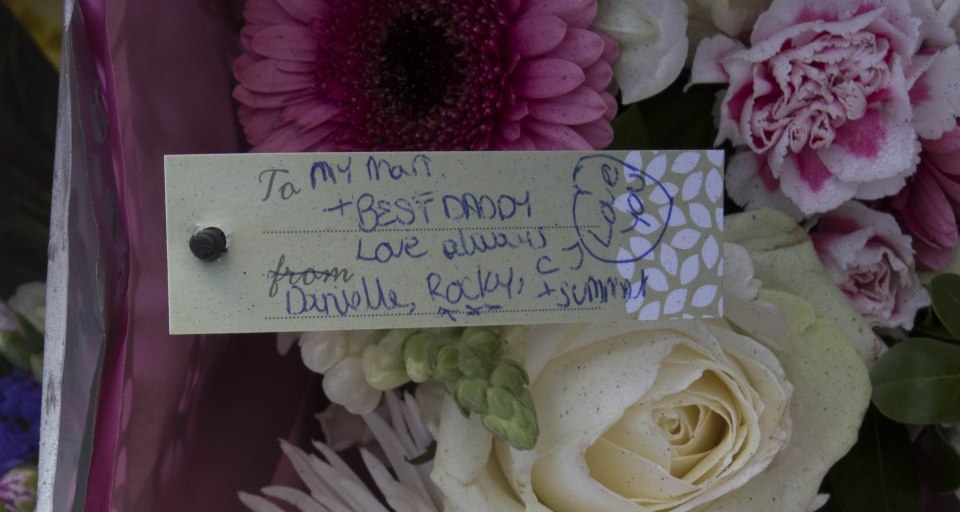 To My Man
+ BEST DADDY
Love always
from
Danielle, Rocky, C, + Summer
Love you